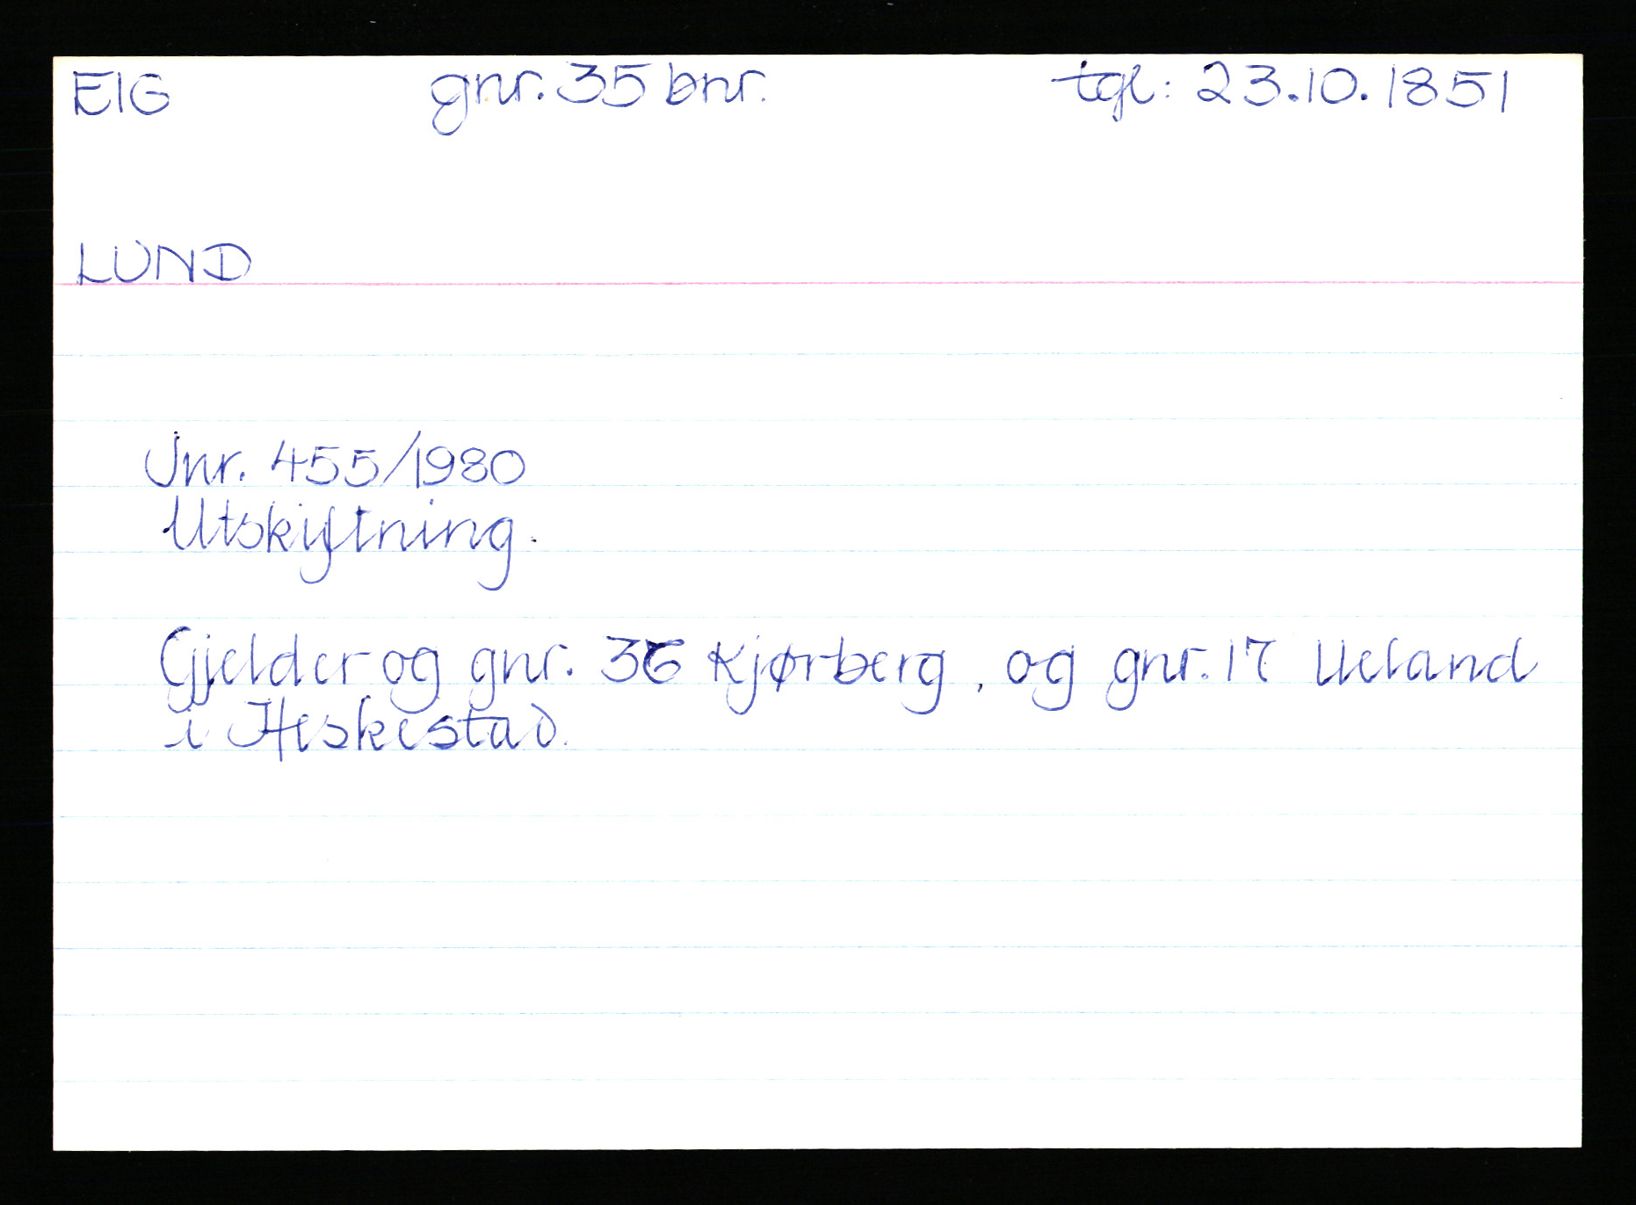 EIG gnr. 35 bnr. tgl: 23.10.1851
LUND
Jnr. 455/1980
Utskiftning.
Gjelder og gnr. 36 Kjørberg, og gnr. 17 Ueland
i Heskestad.